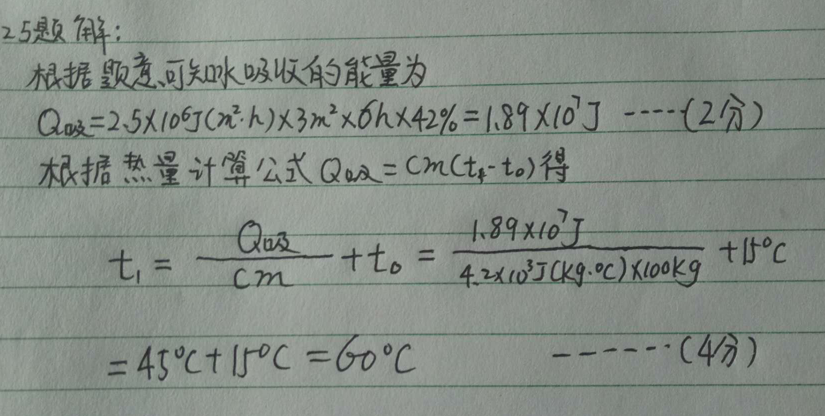 25题解:
根据题意,可知水吸收的能量为
Q吸=2.5×10⁶J(m²·h)×3m²×6h×42%=1.89×10⁷J ----(2分)
根据热量计算公式Q吸=Cm(t₁-t₀)得
t₁ = Q吸/cm + t₀ = 1.89×10⁷J/4.2×10³J(kg·℃)×100kg + 15℃
=45℃+15℃=60℃ ------(4分)